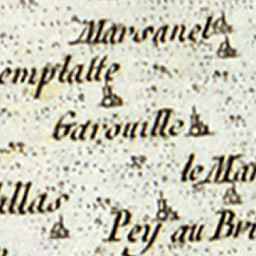 Marsanel
emplatte
Garouille
le Mar
llas
Pey au Bri